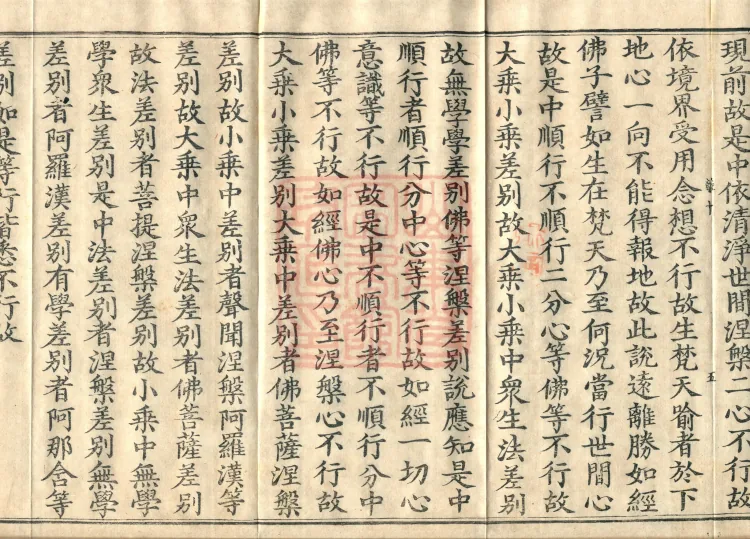 現前故是中依清淨世間涅槃二心不行故
十
五
依境界受用念想不行故生梵天喻者於下
地心一向不能得報地故此說遠離勝如經
佛子譬如生在梵天乃至何況當行世間心
故是中順行不順行二分心等佛等不行故
大乘小乘差別故大乘小乘中眾生法差別
故無學學差別佛等涅槃差別說應知是中
順行者順行分中心等不行故如經一切心
意識等不行故是中不順行者不順行分中
佛等不行故如經佛心乃至涅槃心不行故
大乘小乘差別大乘中差別者佛菩薩涅槃
差別故小乘中差別者聲聞涅槃阿羅漢等
差別故大乘中眾生法差別者佛菩薩差別
故法差別者菩提涅槃差別故小乘中無學
學眾生差別是中法差別者涅槃差別無學
差別者阿羅漢差別有學差別者阿那含等
差別如是等行皆悉不行故